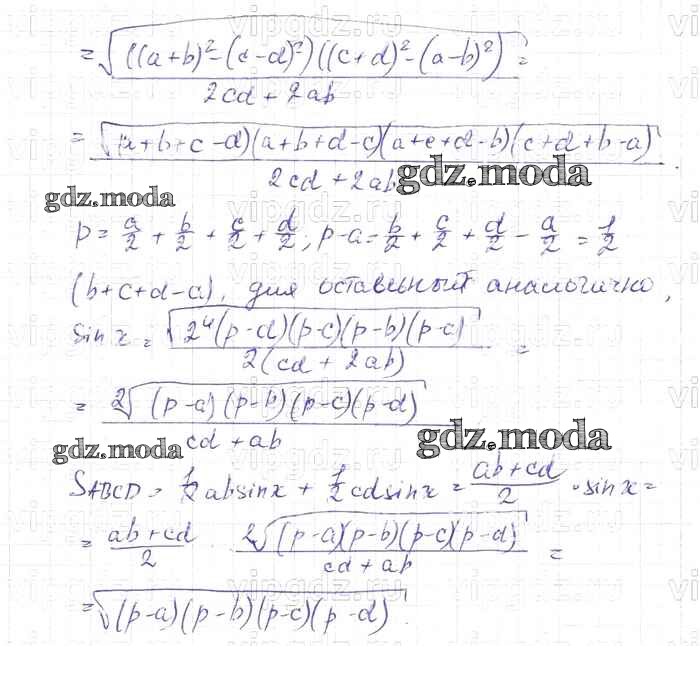 = √((a+b)² - (c-d)²)((c+d)² - (a-b)²) =
2cd + 2ab
= √(a+b+c-d)(a+b+d-c)(a+c+d-b)(c+d+b-a) .
2cd + 2ab
gdz.moda
gdz.moda
p = a/2 + b/2 + c/2 + d/2 ; p-a = b/2 + c/2 + d/2 - a/2 = 1/2
(b+c+d-a), для остальных аналогично,
sin x = √2⁴(p-d)(p-c)(p-b)(p-c) =
2(cd + 2ab)
= 2√(p-a)(p-b)(p-c)(p-d)
cd + ab
gdz.moda
gdz.moda
SABCD = 1/2 ab sin x + 1/2 cd sin x = ab+cd/2 · sin x =
= ab+cd/2 2√(p-a)(p-b)(p-c)(p-d) =
cd + ab
= √(p-a)(p-b)(p-c)(p-d) .